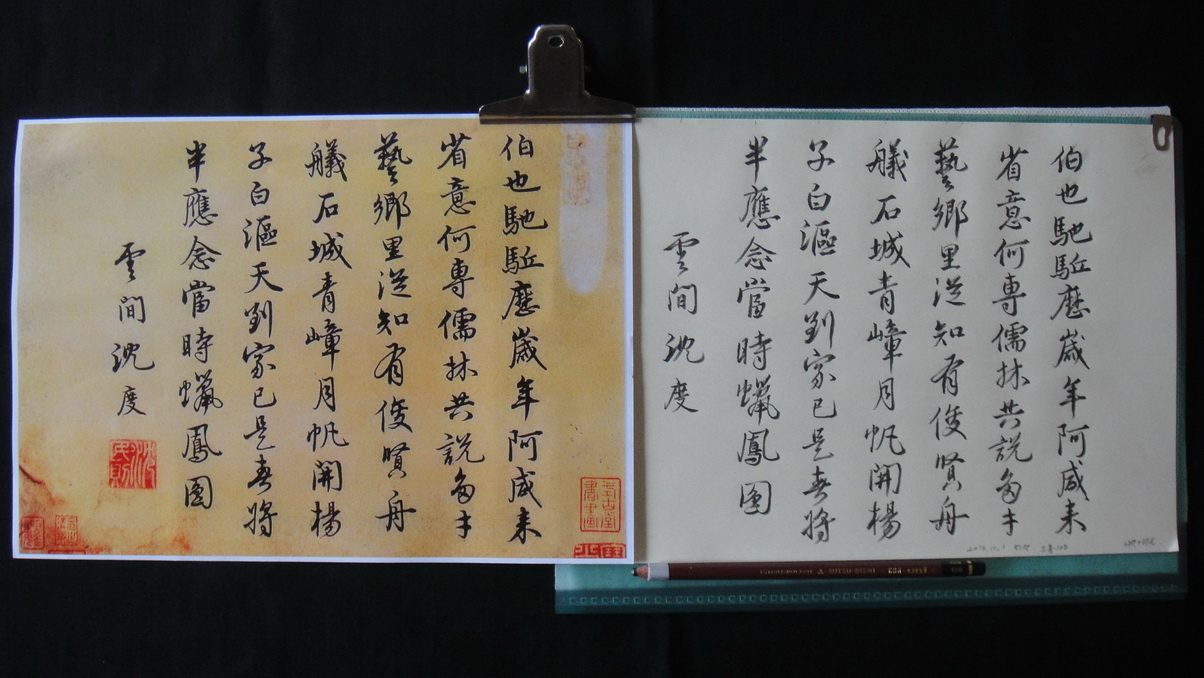 伯也馳駈歷歲年阿咸来
省意何專儒林共說多才
藝鄉里從知有俊賢舟
艤石城青嶂月帆開楊
子白漚天到家已是春將
半應念當時蠟鳳圓
雲間沈度
沈民則
伯也馳駈歷歲年阿咸来
省意何專儒林共說多才
藝鄉里從知有俊賢舟
艤石城青嶂月帆開楊
子白漚天到家已是春將
半應念當時蠟鳳圓
雲間沈度